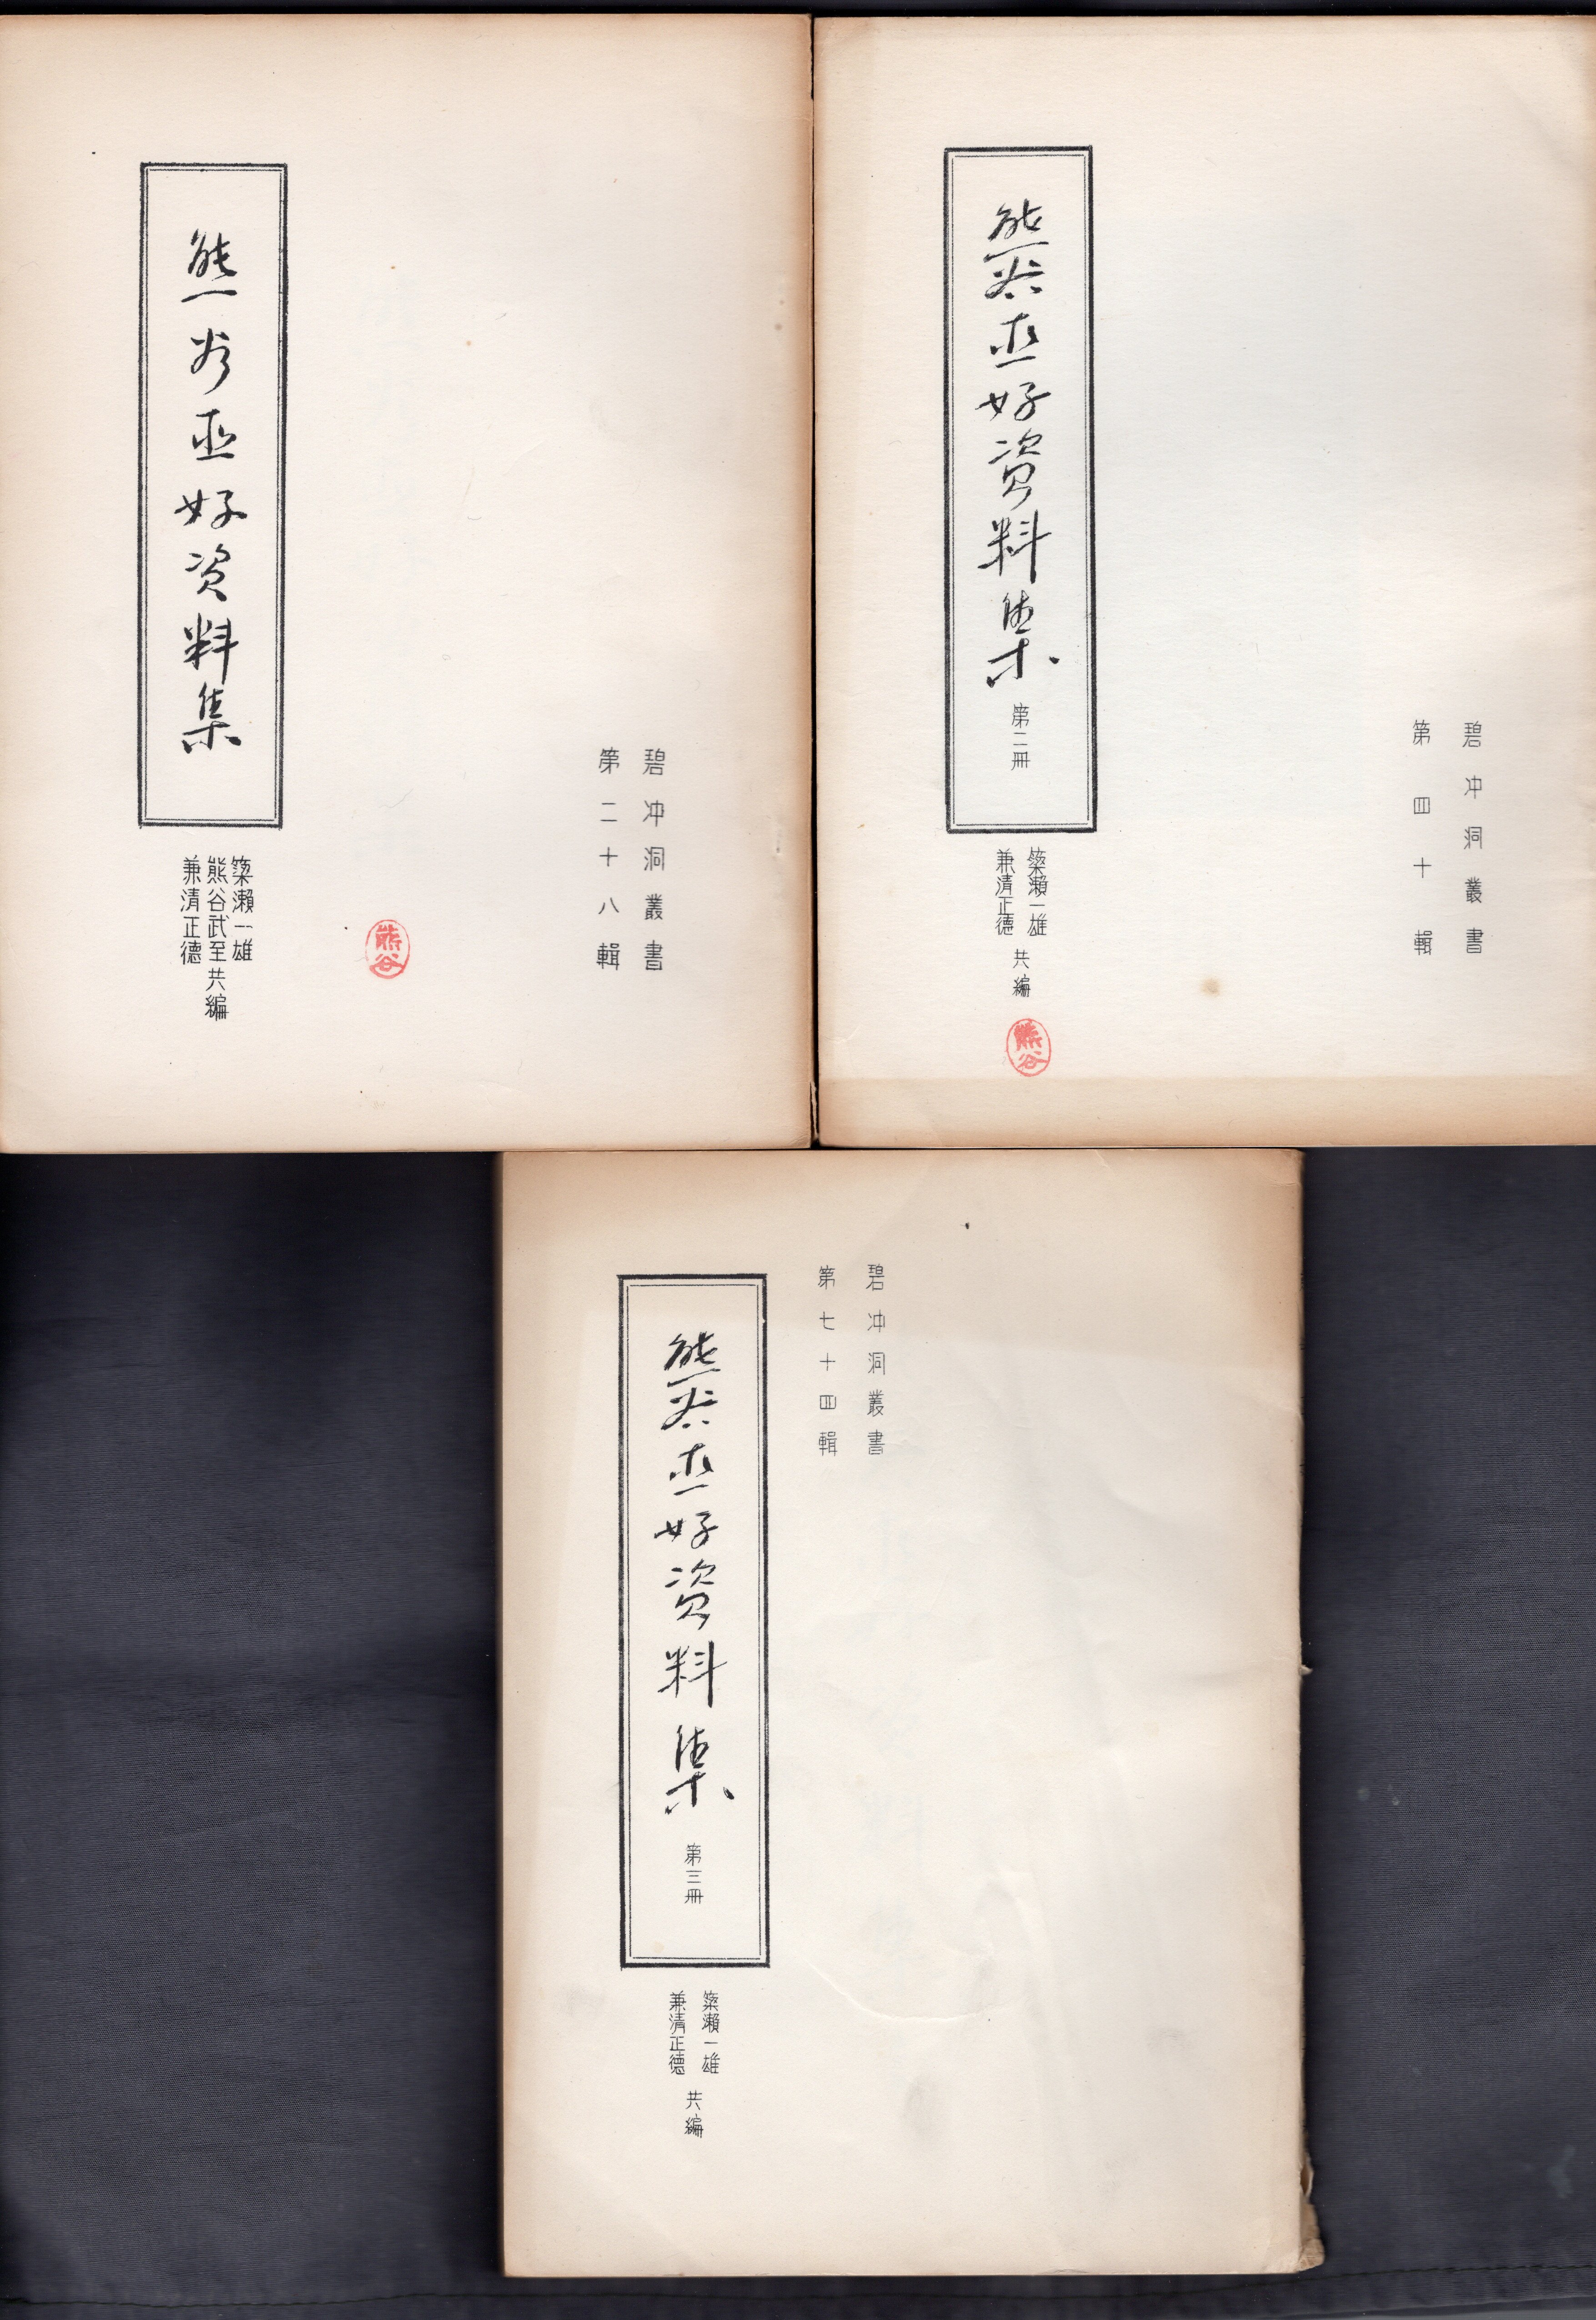 碧冲洞叢書
第二十八輯
熊谷直好資料集
簗瀬一雄
熊谷武至共編
兼清正徳
熊谷
碧冲洞叢書
第四十輯
熊谷直好資料集 第二冊
簗瀬一雄
兼清正徳
共編
熊谷
碧冲洞叢書
第七十四輯
熊谷直好資料集 第三冊
簗瀬一雄
兼清正徳
共編